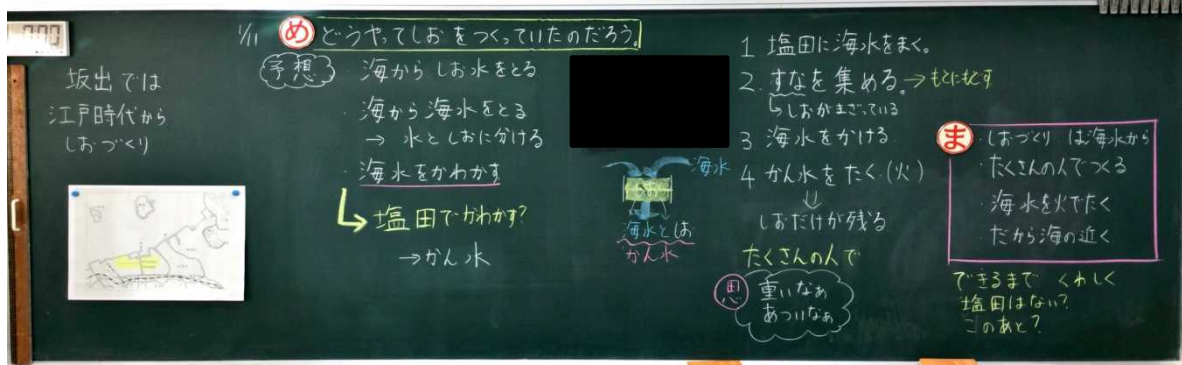 坂出では
江戸時代から
しおづくり
1/11 め どうやってしおをつくっていたのだろう。
予想
・海からしお水をとる
・海から海水をとる
→ 水としおに分ける
・海水をかわかす
塩田でかわかす?
→かん水
海水
海水としお
かん水
1. 塩田に海水をまく。
2. すなを集める。→もとにもどす
しおがまざっている
3 海水をかける
4 かん水をたく(火)
しおだけが残る
たくさんの人で
思
重いなぁ
あついなぁ
ま
・しおづくりは海水から
・たくさんの人でつくる
・海水を火でたく
・だから海の近く
できるまで くわしく
塩田はない?
このあと?